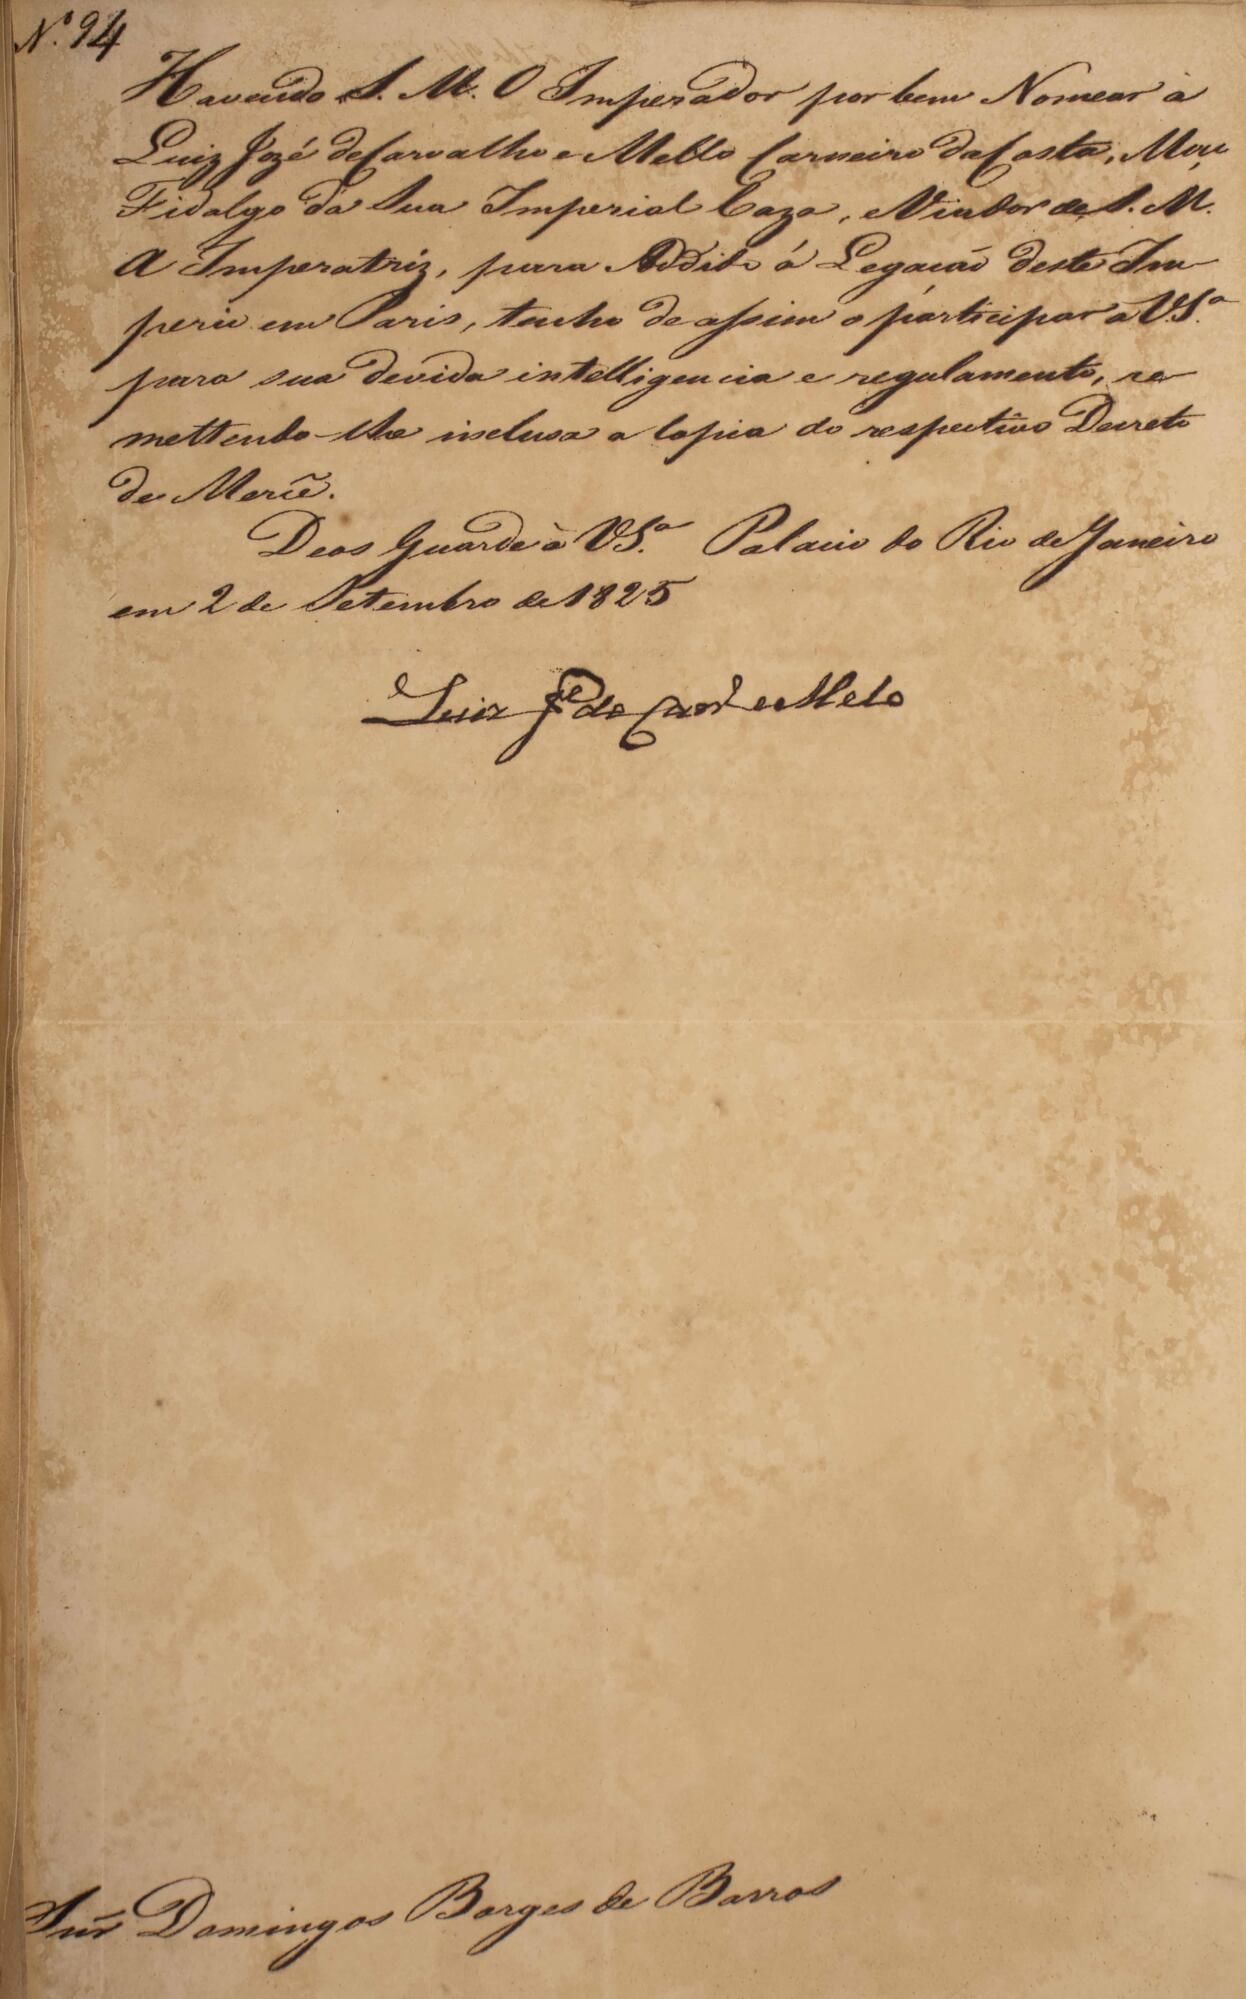 Nº 94
Havendo S. M. O Imperador por bem Nomear a
Luiz Jozé de Carvalho e Mello Carneiro da Costa, Moço
Fidalgo da Sua Imperial Caza, e Viador de S. M.
A Imperatriz, para Addido á Legação deste Im-
perio em Paris, tenho de assim o participar a V. S.ª
para sua devida intelligencia e regulamento, re-
mettendo-lhe inclusa a copia do respectivo Decreto
de Mercê.
Deos Guarde a V. S.ª Palacio do Rio de Janeiro
em 2 de Setembro de 1825
Luiz Je de Carvo e Melo
Snr Domingos Borges de Barros